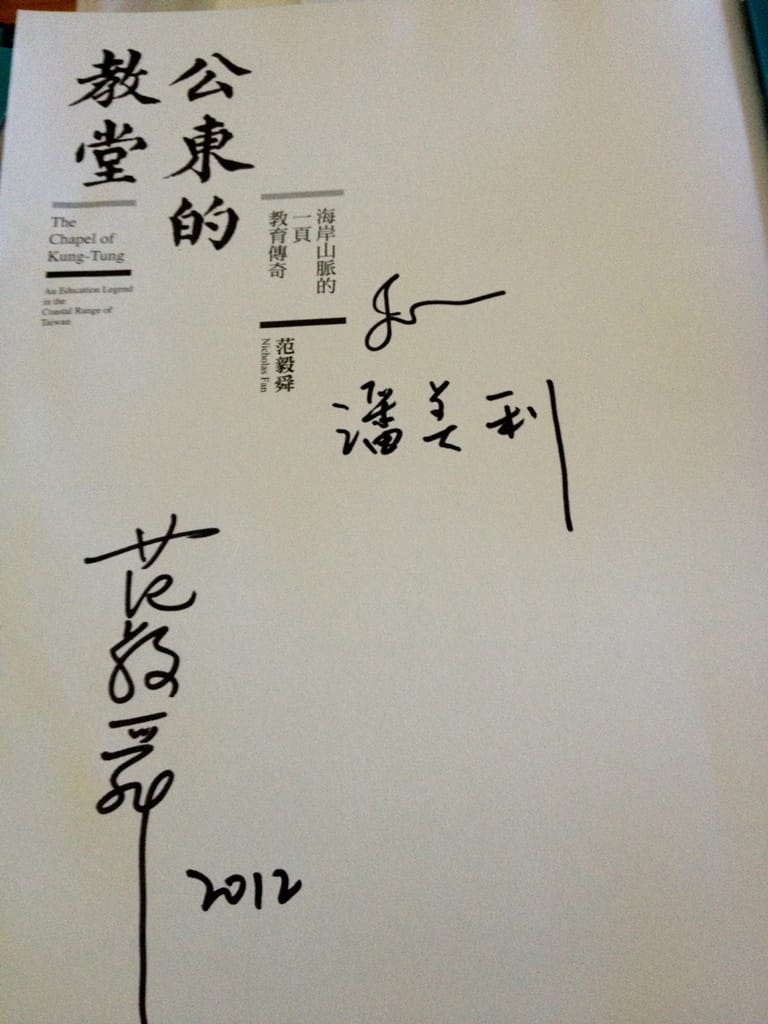 公東的
教堂
The
Chapel of
Kung-Tung
An Education Legend
in the
Coastal Range of
Taiwan
海岸山脈的
一頁
教育傳奇
范毅舜
Nicholas Fan
潘美利
范毅舜
2012